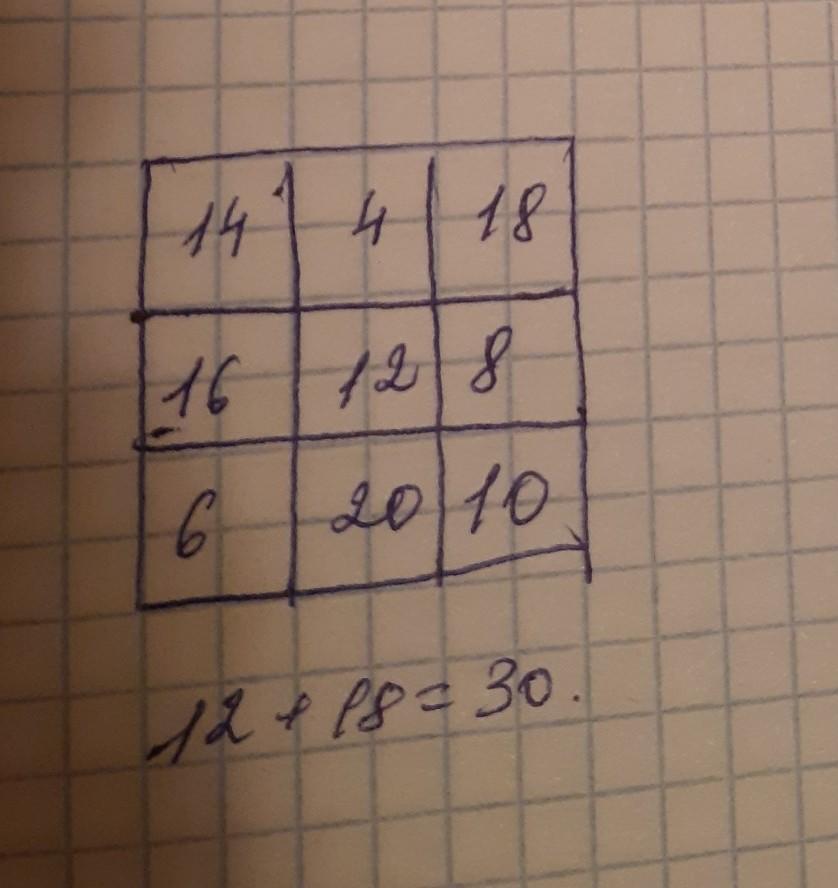 14 4 18
16 12 8
6 20 10
12 + 18 = 30.